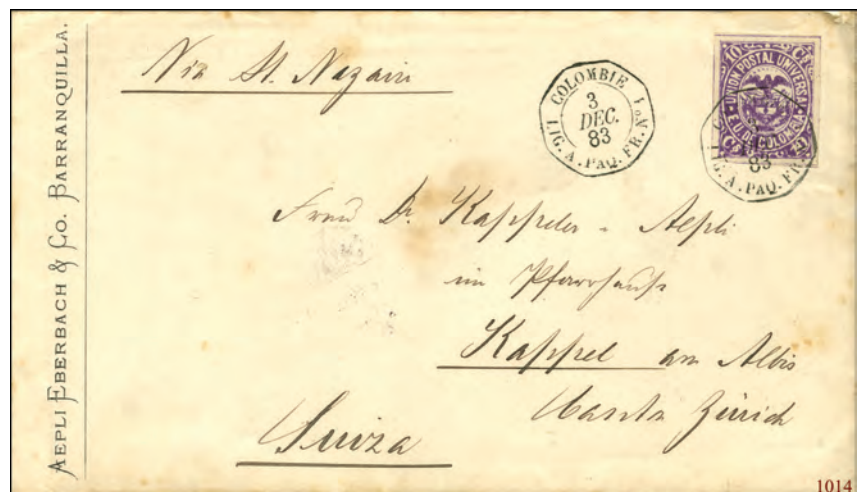 AEPLI EBERBACH & CO. BARRANQUILLA.
Via St. Nazaire
COLOMBIE
3
DEC.
83
LIG. A. PAQ. FR. No 1
10 Cs
UNION POSTAL UNIVERSAL
E.U. DE COLOMBIA
83
LIG. A. PAQ. FR.
Frau Dr. Kappeler - Aepli
im Pfarrhause
Kappel am Albis
Canton Zürich
Suiza
1014